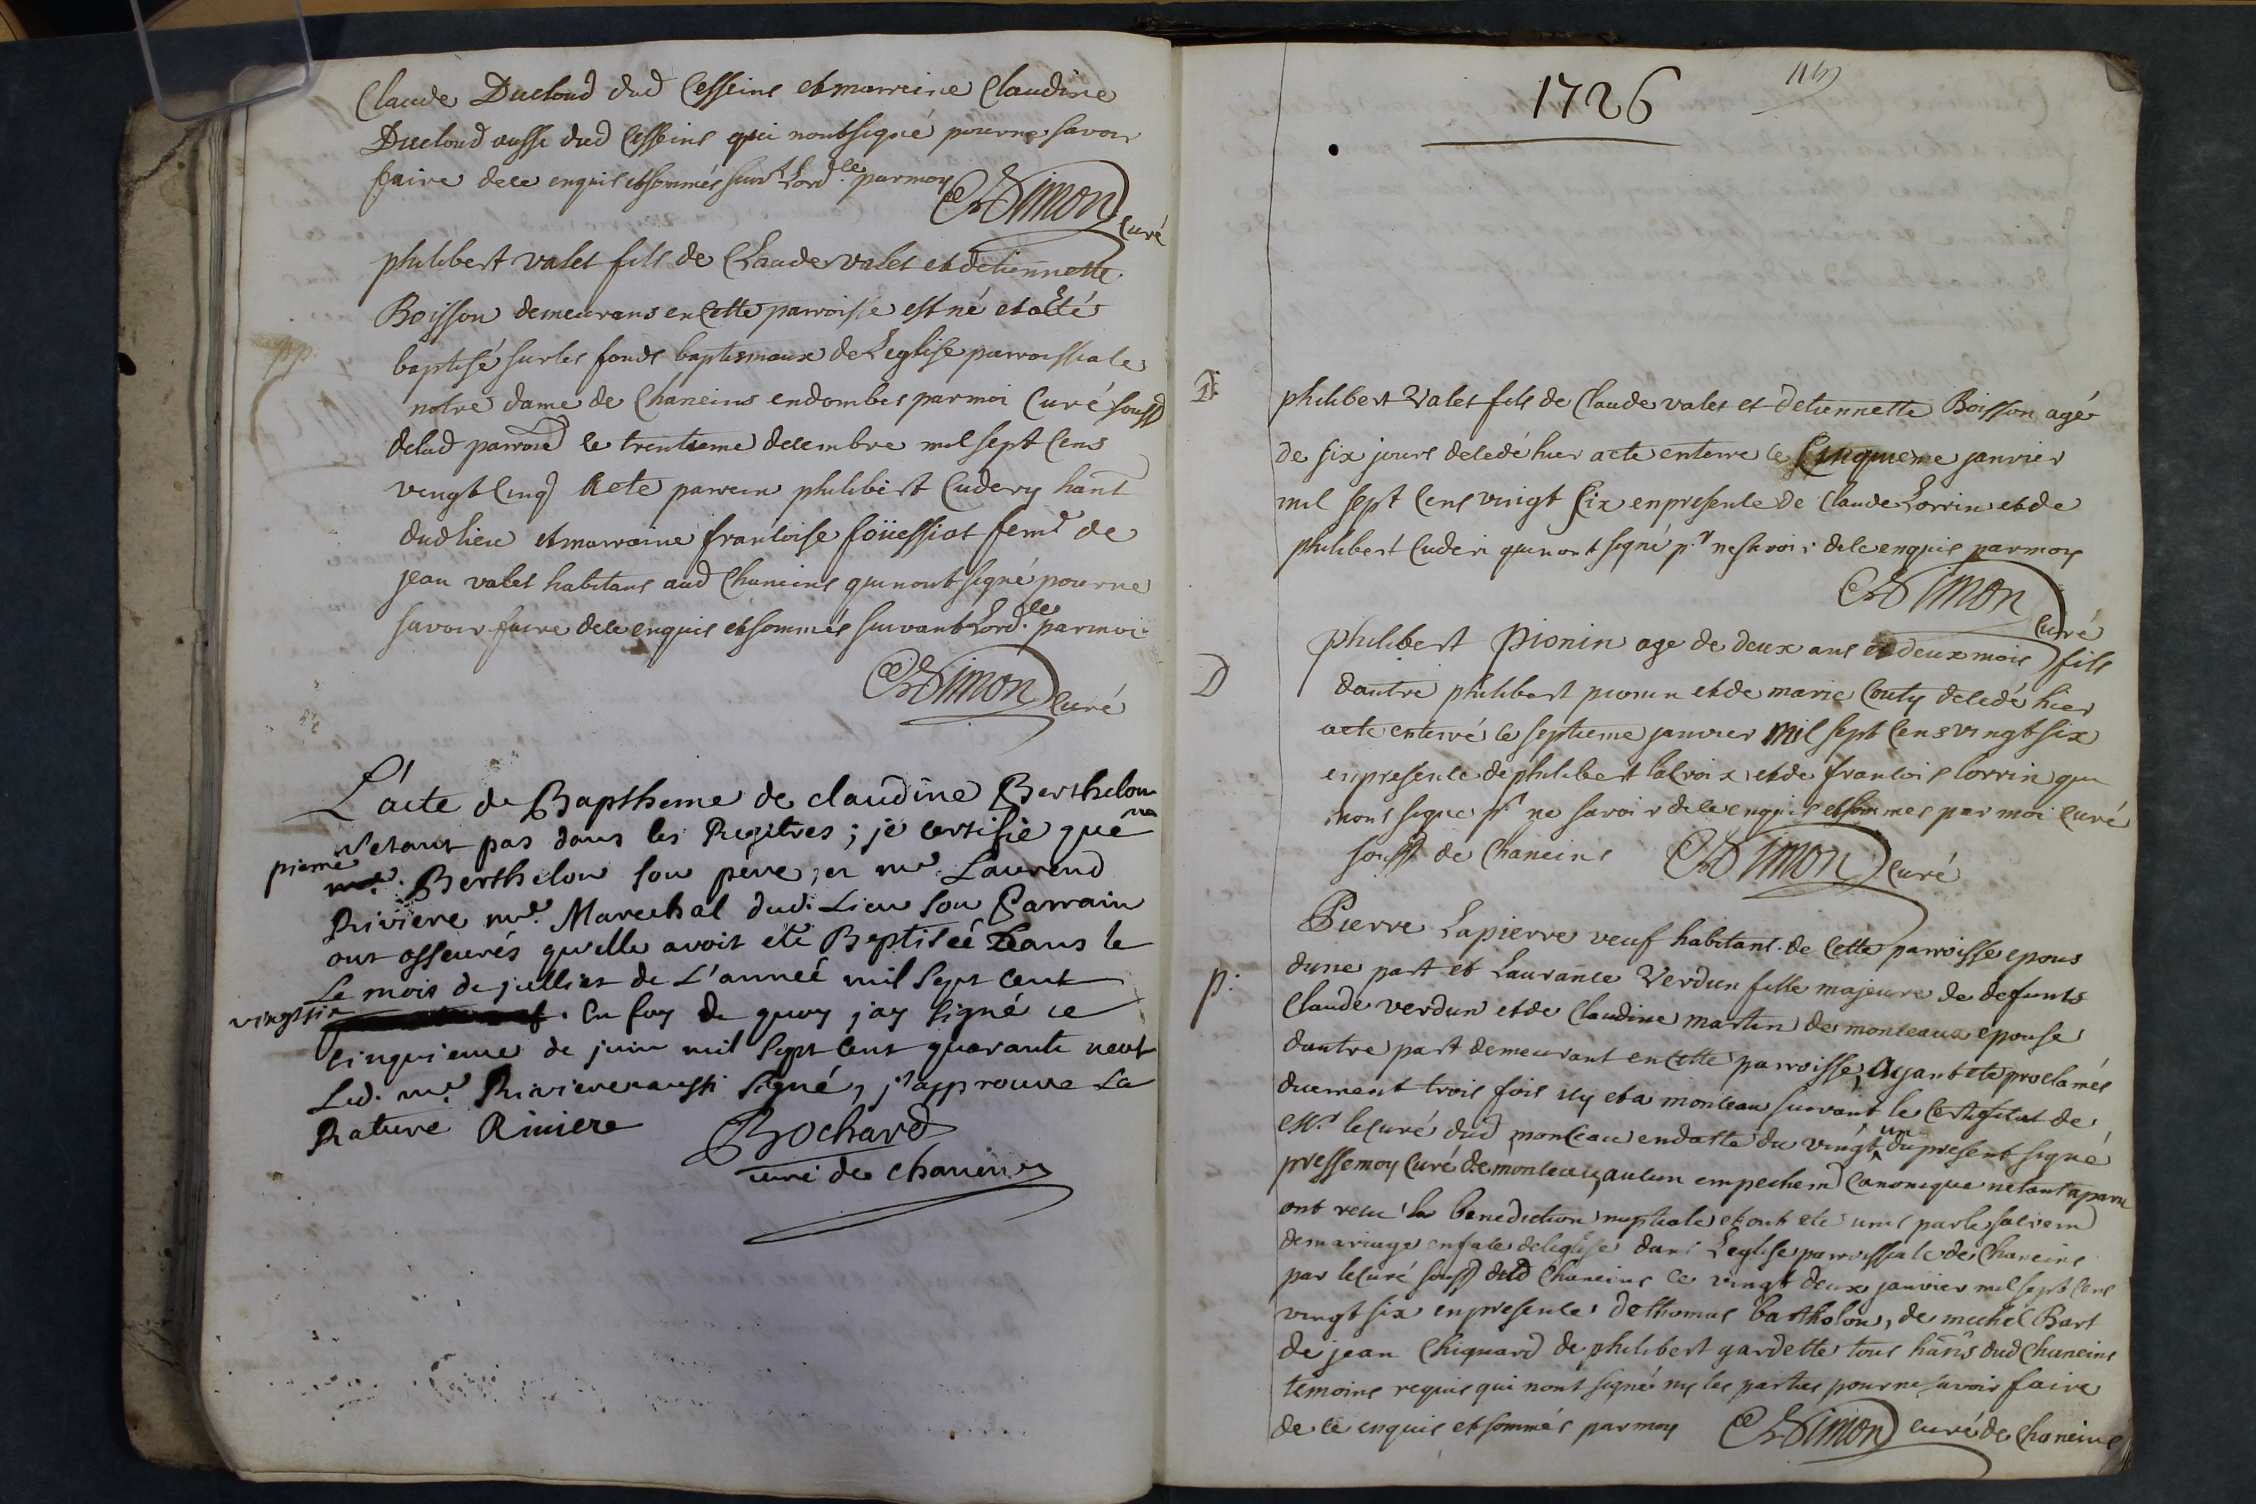 Claude Ducloud dud Cesseins et marreine Claudine
Ducloud aussi dud Cesseins qui nont signé pour ne savoir
faire de ce enquis et sommés suivt Lord.ce par moy
Simon curé
philibert valet fils de Claude valet et detiennette
Boisson demeurans en Cette parroisse est né et a été
baptisé sur les fonds baptismaux de Leglise parroissiale
notre dame de Chaneins en dombes par moi Curé soussd
de lad parroisse le trentieme decembre mil sept Cens
vingt Cinq a ete parrein philibert Cudery hant
dud lieu et marraine francoise foüessiat feme de
jean valet habitans aud Chaneins qui nont signé pour ne
savoir faire de ce enquis et sommés suivant Lord.ce par moi
Simon Curé
L'acte de Baptheme de claudine Berthelon
n'etant pas dans les Regitres ; je certifie que
pierre me. Berthelon son père, et me Laurend
Riviere me. Marechal dud. Lieu son Parrain
ont asseurés qu'elle avoit eté Baptiseé dans le
Le mois de juillet de L'anneé mil sept cent
vingt six . En foy de quoy j'ay signé ce
cinquieme de juin mil sept cent quarante neuf
Led. me. Riviere aussi signé, j'approuve La
Rature Riviere Bochard
curé de chaneins
1726
D philibert Valet fils de Claude valet et detiennette Boisson agé
de six jours decedé hier a ete enterre le Cinquieme janvier
mil sept Cens vingt Six en presence de Claude Lorrin et de
philibert Cuderi qui nont signé pr ne savoir de ce enquis par moy
Simon Curé
D philibert Pionin age de deux ans et deux mois fils
dautre philibert pionin et de marie Couty decedé hier
a ete enterré le septieme janvier mil sept Cens vingt six
en presence de philibert lacroix et de francois lorrin qui
nont signe pr ne savoir de ce enquis et sommes par moi Curé
soussd de Chaneins Simon Curé
Pierre Lapierre veuf habitant de Cette parroisse epous
p. dune part et Laurance Verdun fille majeure de defunts
Claude verdun et de Claudine martin de monceaux epouse
dautre part demeurant en cette parroisse, ayant ete proclamés
duement trois fois icy et a monceau suivant le Certificat de
Mr le Curé dud monceau en datte du vingt un du present signé
presse moy Curé de monceau, aucun empechemt Canonique netant aparu
ont recu la benediction nuptiale et ont ete unis par le sacrem
de mariage en face de leglise dans Leglise parroissiale de Chaneins
par le Curé soussd dud Chaneins ce vingt deux janvier mil sept Cens
vingt six en presence de thomas bartholon, de michel Bart
de jean Chiquard de philibert gardette tous hants dud Chaneins
temoins requis qui nont signé ny les parties pour ne savoir faire
de ce enquis et sommés par moy Simon curé de Chaneins